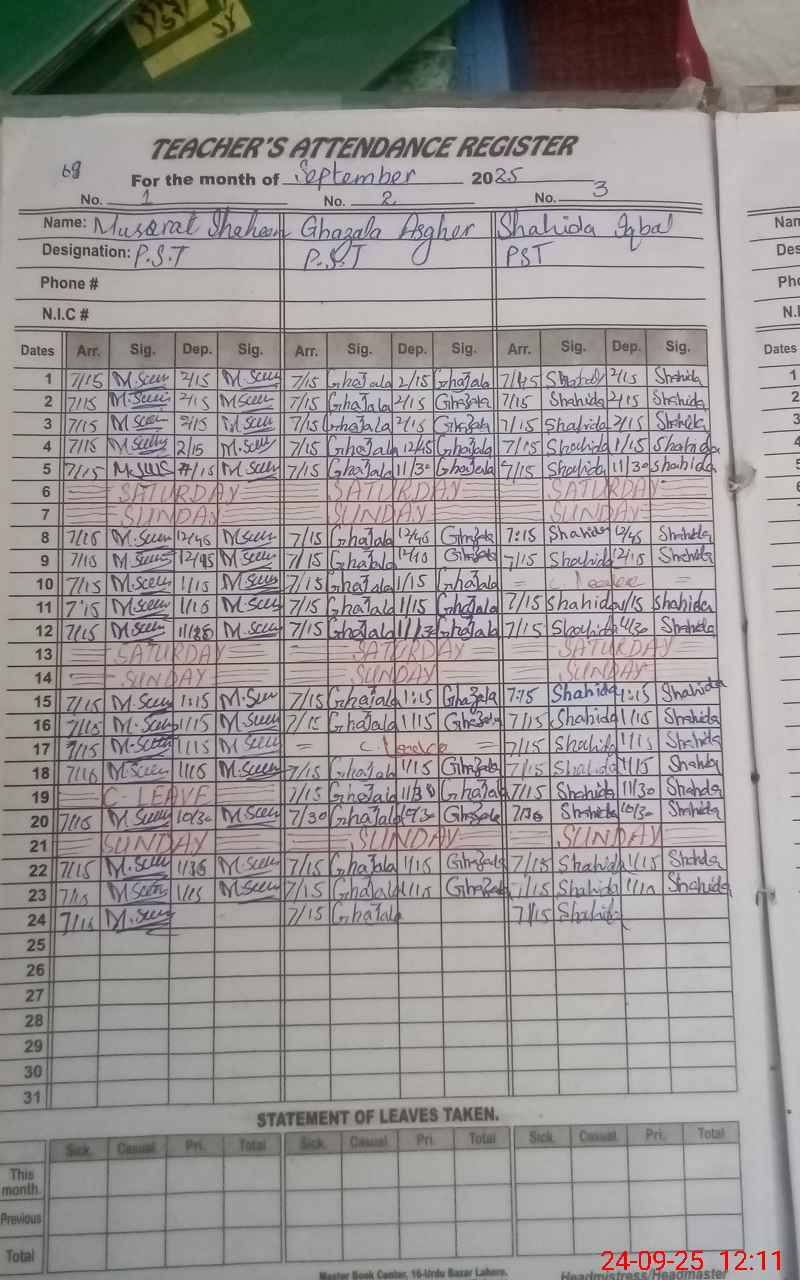 TEACHER'S ATTENDANCE REGISTER
68
For the month of September 2025
No. 1 No. 2 No. 3
Name: Musarat Shaheen Ghazala Asgher Shahida Iqbal
Designation: P.S.T P.S.T PST
Phone #
N.I.C #
Dates Arr. Sig. Dep. Sig. Arr. Sig. Dep. Sig. Arr. Sig. Dep. Sig.
1 7/15 M.Seen 2/15 M.Seen 7/15 Ghazala 2/15 Ghazala 7/15 Shahida 2/15 Shahida
2 7/15 M.Seen 2/15 M.Seen 7/15 Ghazala 2/15 Ghazala 7/15 Shahida 2/15 Shahida
3 7/15 M.Seen 2/15 M.Seen 7/15 Ghazala 2/15 Ghazala 7/15 Shahida 2/15 Shahida
4 7/15 M.Seen 2/15 M.Seen 7/15 Ghazala 12/45 Ghazala 7/15 Shahida 1/15 Shahida
5 7/15 M.Seen M.Seen 7/15 Ghazala 11/30 Ghazala 7/15 Shahida 11/30 Shahida
6 SATURDAY SATURDAY SATURDAY
7 SUNDAY SUNDAY SUNDAY
8 7/15 M.Seen 12/45 M.Seen 7/15 Ghazala 12/45 Ghazala 7:15 Shahida 12/45 Shahida
9 7/15 M.Seen 12/45 M.Seen 7/15 Ghazala Ghazala 7/15 Shahida 12/15 Shahida
10 7/15 M.Seen 1/15 M.Seen 7/15 Ghazala 1/15 Ghazala = C. Leave =
11 7/15 M.Seen 1/15 M.Seen 7/15 Ghazala 1/15 Ghazala 7/15 Shahida 1/15 Shahida
12 7/15 M.Seen 11/30 M.Seen 7/15 Ghazala 11/30 Ghazala 7/15 Shahida 11/30 Shahida
13 SATURDAY SATURDAY SATURDAY
14 SUNDAY SUNDAY SUNDAY
15 7/15 M.Seen 1:15 M.Seen 7/15 Ghazala 1:15 Ghazala 7:15 Shahida 1:15 Shahida
16 7/15 M.Seen 1/15 M.Seen 7/15 Ghazala 1/15 Ghazala 7/15 Shahida 1/15 Shahida
17 7/15 M.Seen 1/15 M.Seen = C. Leave = 7/15 Shahida 1/15 Shahida
18 7/15 M.Seen 1/15 M.Seen 7/15 Ghazala 1/15 Ghazala 7/15 Shahida 1/15 Shahida
19 C-LEAVE 7/15 Ghazala 11/30 Ghazala 7/15 Shahida 11/30 Shahida
20 7/15 M.Seen 10/30 M.Seen 7/30 Ghazala 10/30 Ghazala 7/30 Shahida 10/30 Shahida
21 SUNDAY SUNDAY SUNDAY
22 7/15 M.Seen M.Seen 7/15 Ghazala 1/15 Ghazala 7/15 Shahida 1/15 Shahida
23 7/15 M.Seen 1/15 M.Seen 7/15 Ghazala 1/15 Ghazala 7/15 Shahida 1/15 Shahida
24 7/15 M.Seen 7/15 Ghazala 7/15 Shahida
25
26
27
28
29
30
31
STATEMENT OF LEAVES TAKEN.
Sick. Casual. Pri. Total Sick. Casual Pri. Total Sick. Casual. Pri. Total
This month.
Previous
Total
Master Book Center, 16-Urdu Bazar Lahore.
Headmistress/Headmaster
Dates
1
2
3
4
24-09-25 12:11